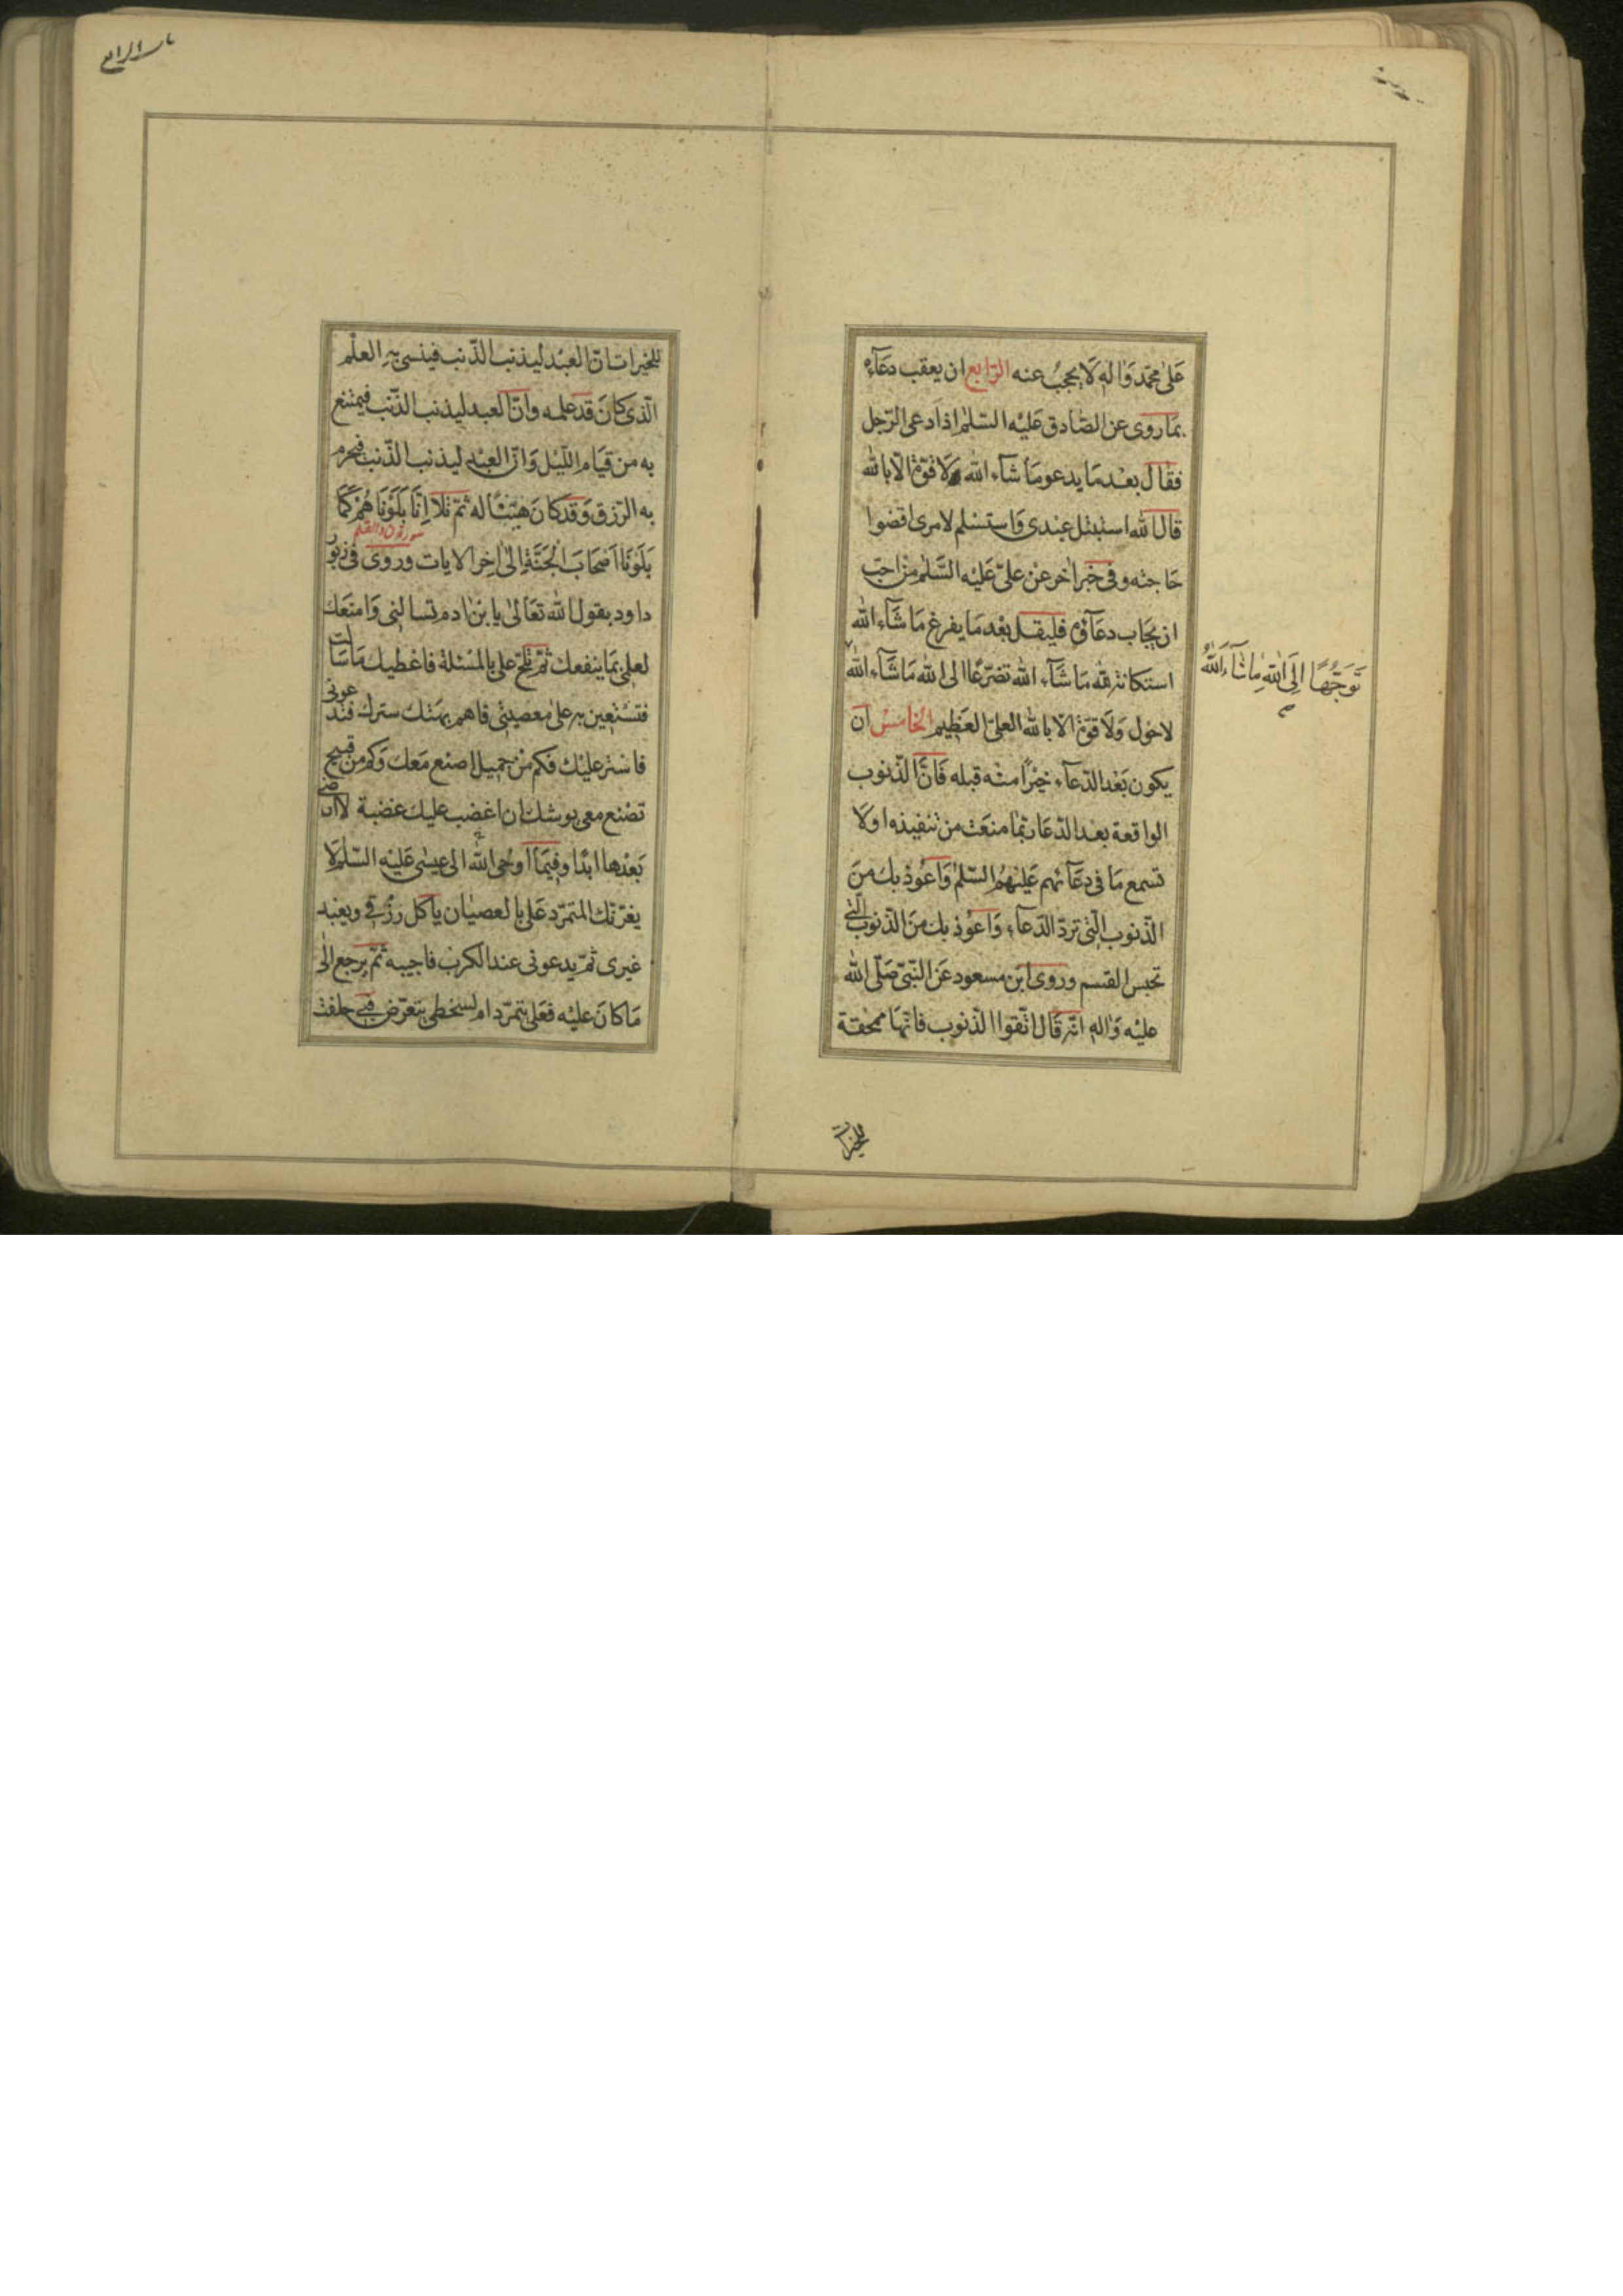 عَلىٰ محمّد وَاٰلهِ لَا يحجبُ عنه الرّابع ان يعقب دعَآءَه
بمَا روى عن الصّادق عَليْه السّلمُ اذا دعى الرّجل
فقالَ بعْد مَا يدعو مَا شآء الله وَلا قوّة الّا بالله
قال الله استبتل عبدى وَاستسْلم لامرى اقضوا
حَاجته وفى خَبر اٰخر عنْ علىّ عَليْه السَّلمُ مَنْ احبّ
ان يجَاب دعَآؤه فليقل بعْد مَا يفرغ مَا شآءَ الله
استكانة لله مَا شآء الله تضرّعًا الى الله مَا شَآء الله
تَوَجُّهًا اِلَى اللهِ مَا شَآءَ اللهُ
لا حَول وَلَا قوّة الّا بالله العلىّ العَظيم الخامسُ ان
يكون بَعْد الدّعآء خيْرًا منْه قبله فَانّ الذّنوب
الواقعة بعد الدّعَا ربّمَا منعَت من تنفيذه اولَا
تسمع مَا فى دعَآئهم عَليْهمُ السّلمُ وَاَعُوذ بك منَ
الذّنوب الّتى تردّ الدّعآء وَاعوُذ بك منَ الذّنوب الّتى
تحبس القسم وروى ابن مسعود عَن النّبىّ صَلّى الله
عليْه وَاٰلهِ انّه قَال اتّقوا الذّنوب فانّهَا ممحقة
للخيرات
باب الرابع
للخيرات انّ العبْد ليذنب الذّنب فينسى بهِ العلْم
الّذى كانَ قَد علمه وانّ العبد ليذنب الذّنب فيمتنع
به من قيَام اللّيْل وَانّ العبْد ليذنب الذّنب فيحرم
به الرّزق وَقدْ كانَ هيّنًا له ثمّ تلا اِنّا بَلَوْنَا هُمْ كَمَا
سورة ن والقلم
بَلَوْنَا اَصْحَابَ الْجَنَّةِ الىٰ اٰخِر الايات وروى فى زبور
داود يقول الله تعَالىٰ يا بْنَ اٰدم تسالنى وَامنعَك
لعلمى بمَا ينفعك ثمّ تلحّ علىّ بالمسْئلة فاعْطيك مَا سَالت
فتسْتعين به علىٰ معصيتى فاهمّ بهتك سترك فتدعونى
فاسْتر عليْك فكم منْ جميل اصنع مَعك وَكم من قبيح
تصْنع معى يوشك ان اغضب عليك غضبة لا ارضى
بَعْدها ابدًا وفيمَا اَوحى الله الى عيسٰى عَليْه السّلمُ لَا
يغرّنّك المتمرّد عَلىّ بالعصيٰان ياكل رزْقى ويعْبد
غيرى ثمّ يدعونى عند الكرْب فاجيبه ثمّ يرجع الىٰ
مَا كانَ عليْه فعَلىّ يتمرّد ام لسخطى يتعرّض فبى حلفت